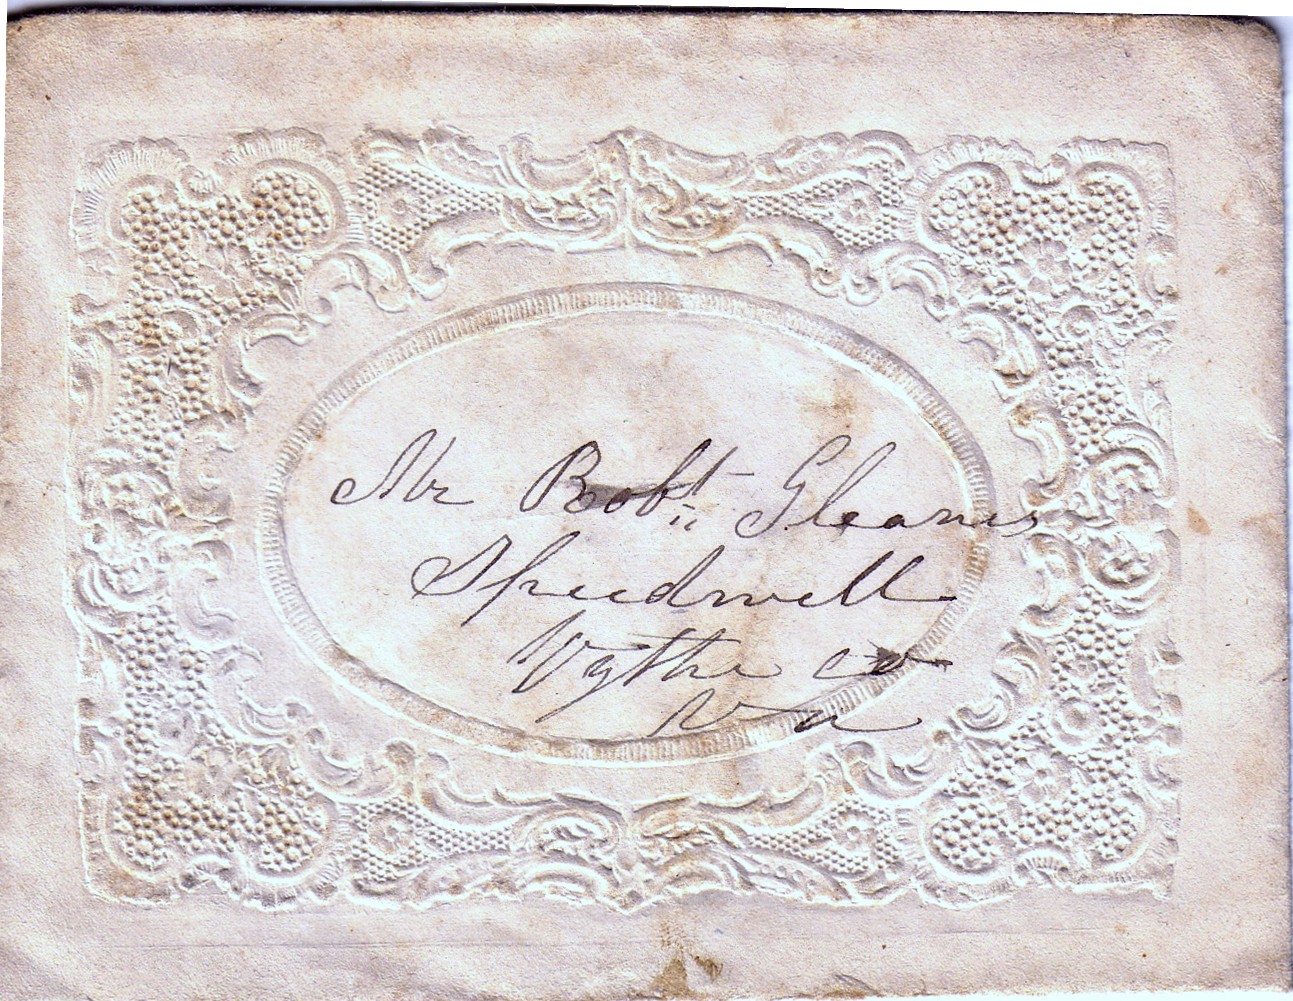 Mr Robt Gleaves
Speedwell
Wythe co
Va